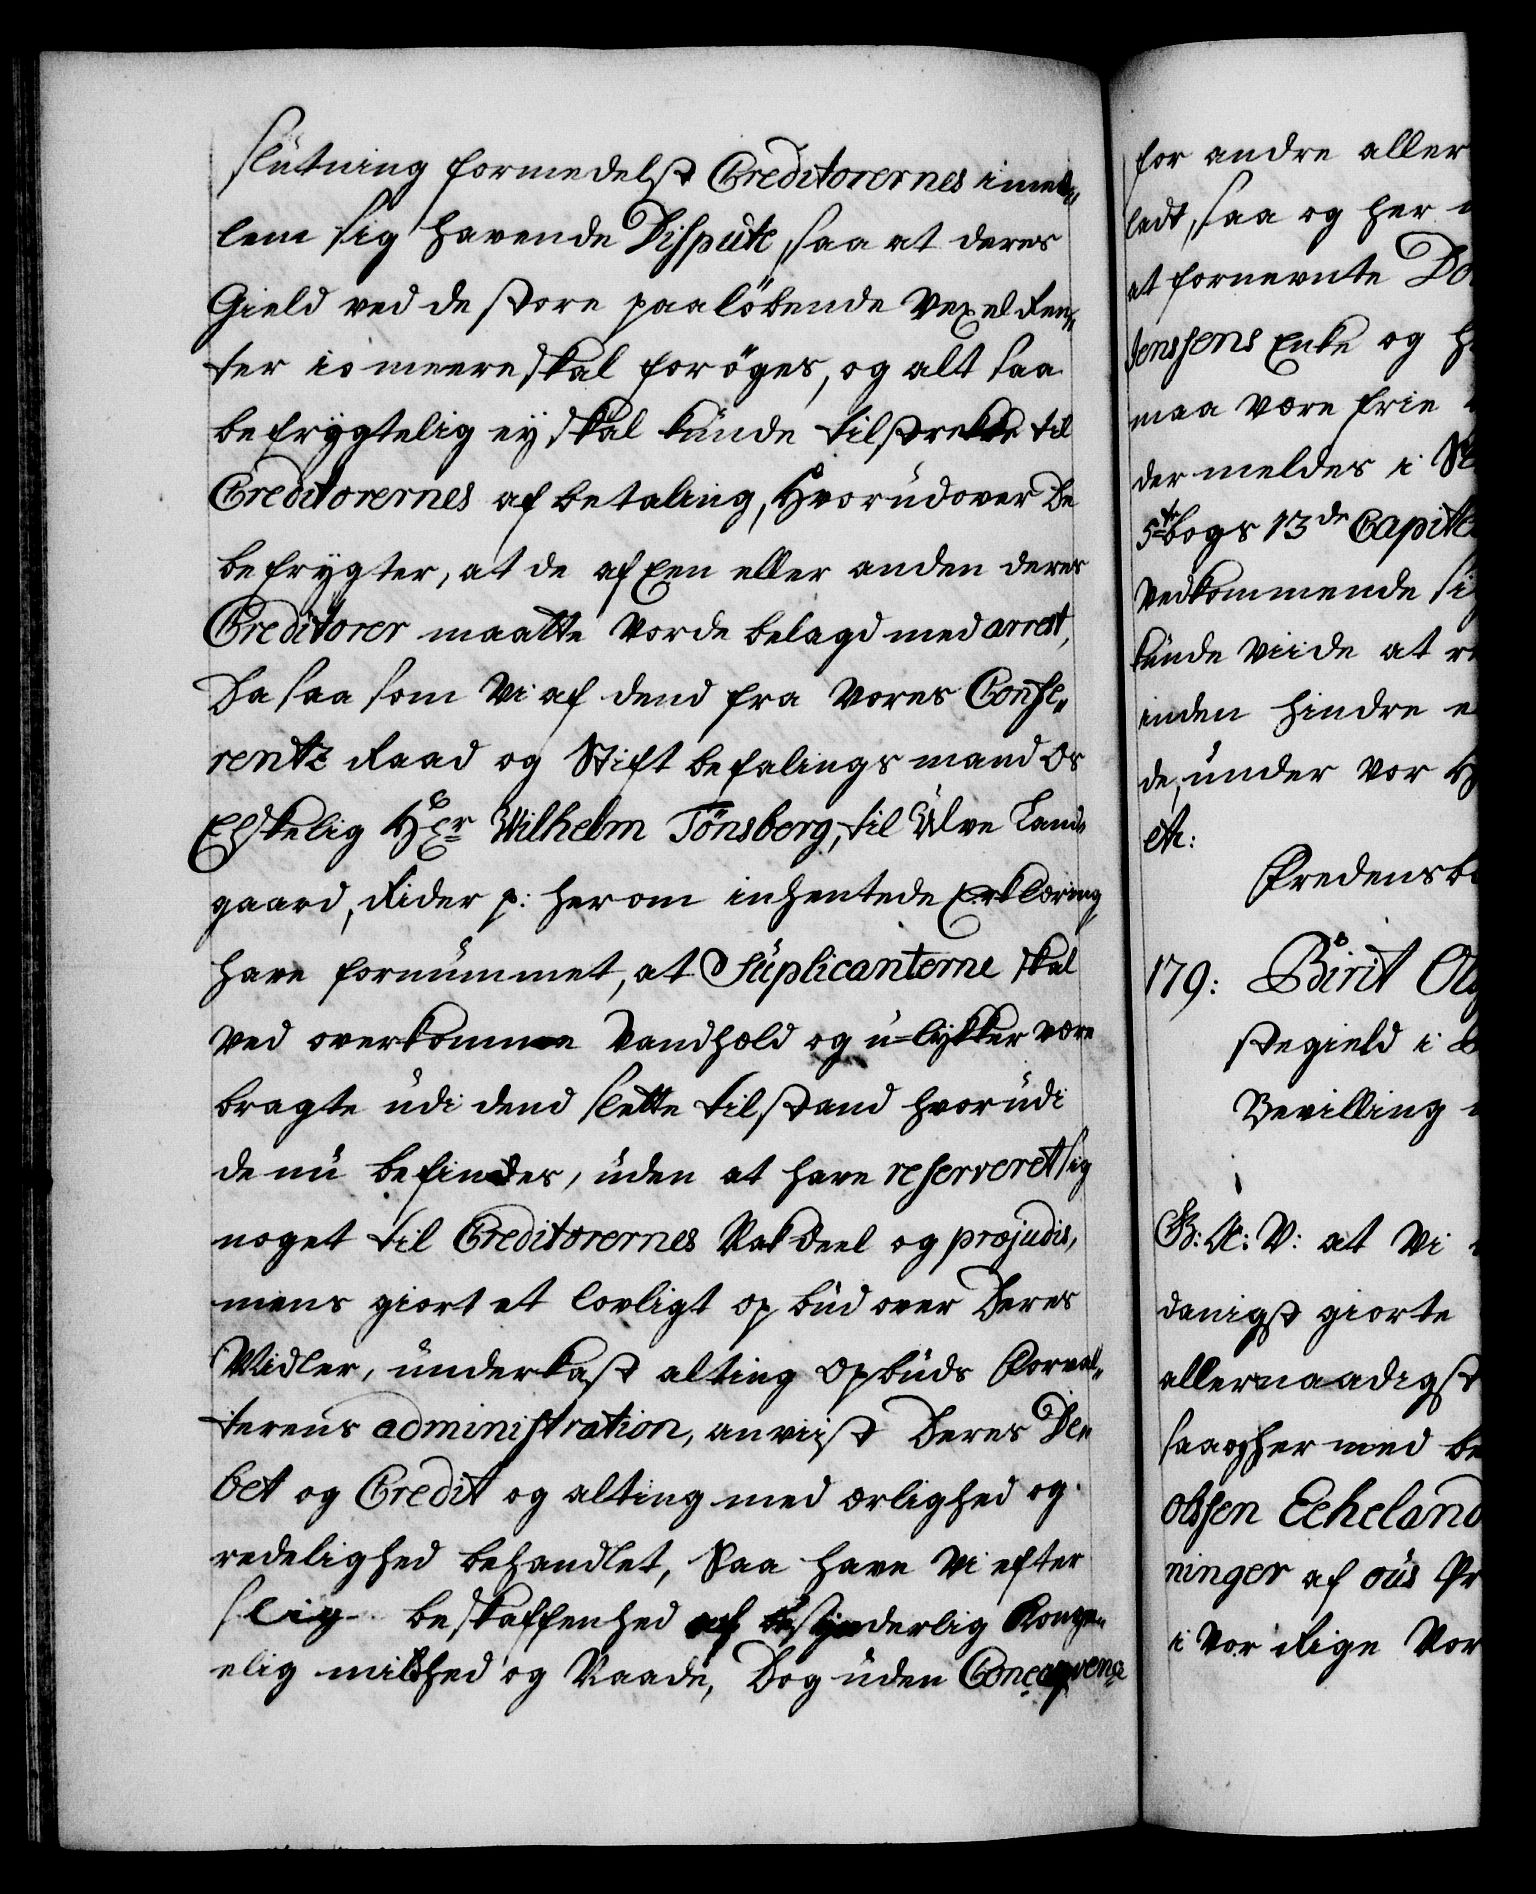 slutning formedelst Creditorernes imel„
lem sig havende Dispute, saa at deres
Gield ved de store paaløbende Vexel Ren„
ter io meere skal forøges, og alt saa
befrygtelig ey skal kunde tilstrekke til
Creditorernes afbetaling, Hvorudover De
befrygter, at de af Een eller anden deres
Creditorer maatte vorde belagd med arrest,
Da saa som Vi af dend fra Vores Confe„
rentz Raad og Stift befalings mand Os
Elskelig Hr: Wilhelm Tönsberg, til Ulve Land„
gaard, Rider p: herom inhentede Erklæring
have fornummet, at Suplicanterne skal
ved overkommen Vandheld og u=lykker være
bragte udi dend slette tilstand hvorudi
de nu befindes, uden at have reserveret sig
noget til Creditorernes Nakdeel og præjudis,
mens giort et lovligt opbud over Deres
Midler, underkast alting Opbuds Forval„
terens administration, anviist Deres De„
bet og Credit og alting med ærlighed og
redelighed behandlet, Saa have Vi efter
slig beskaffenhed af synderlig Konge„
elig mildhed og Naade, Dog uden
for andre aller
ladt, saa og her
at fornevnte
Jenssens Enke og
maa være frie
der meldes i
5te bogs 13de Capitl
Vedkommende
kunde viide at
inden hindre
de, under vor
etc:
Fredensb
179: Birit
stegield i
Bevilling
G: A: V: at Vi
danigst giorte
allernaadigst
saa og her med be
olssen Eekeland
ninger af ous
i Vor Rige Nor